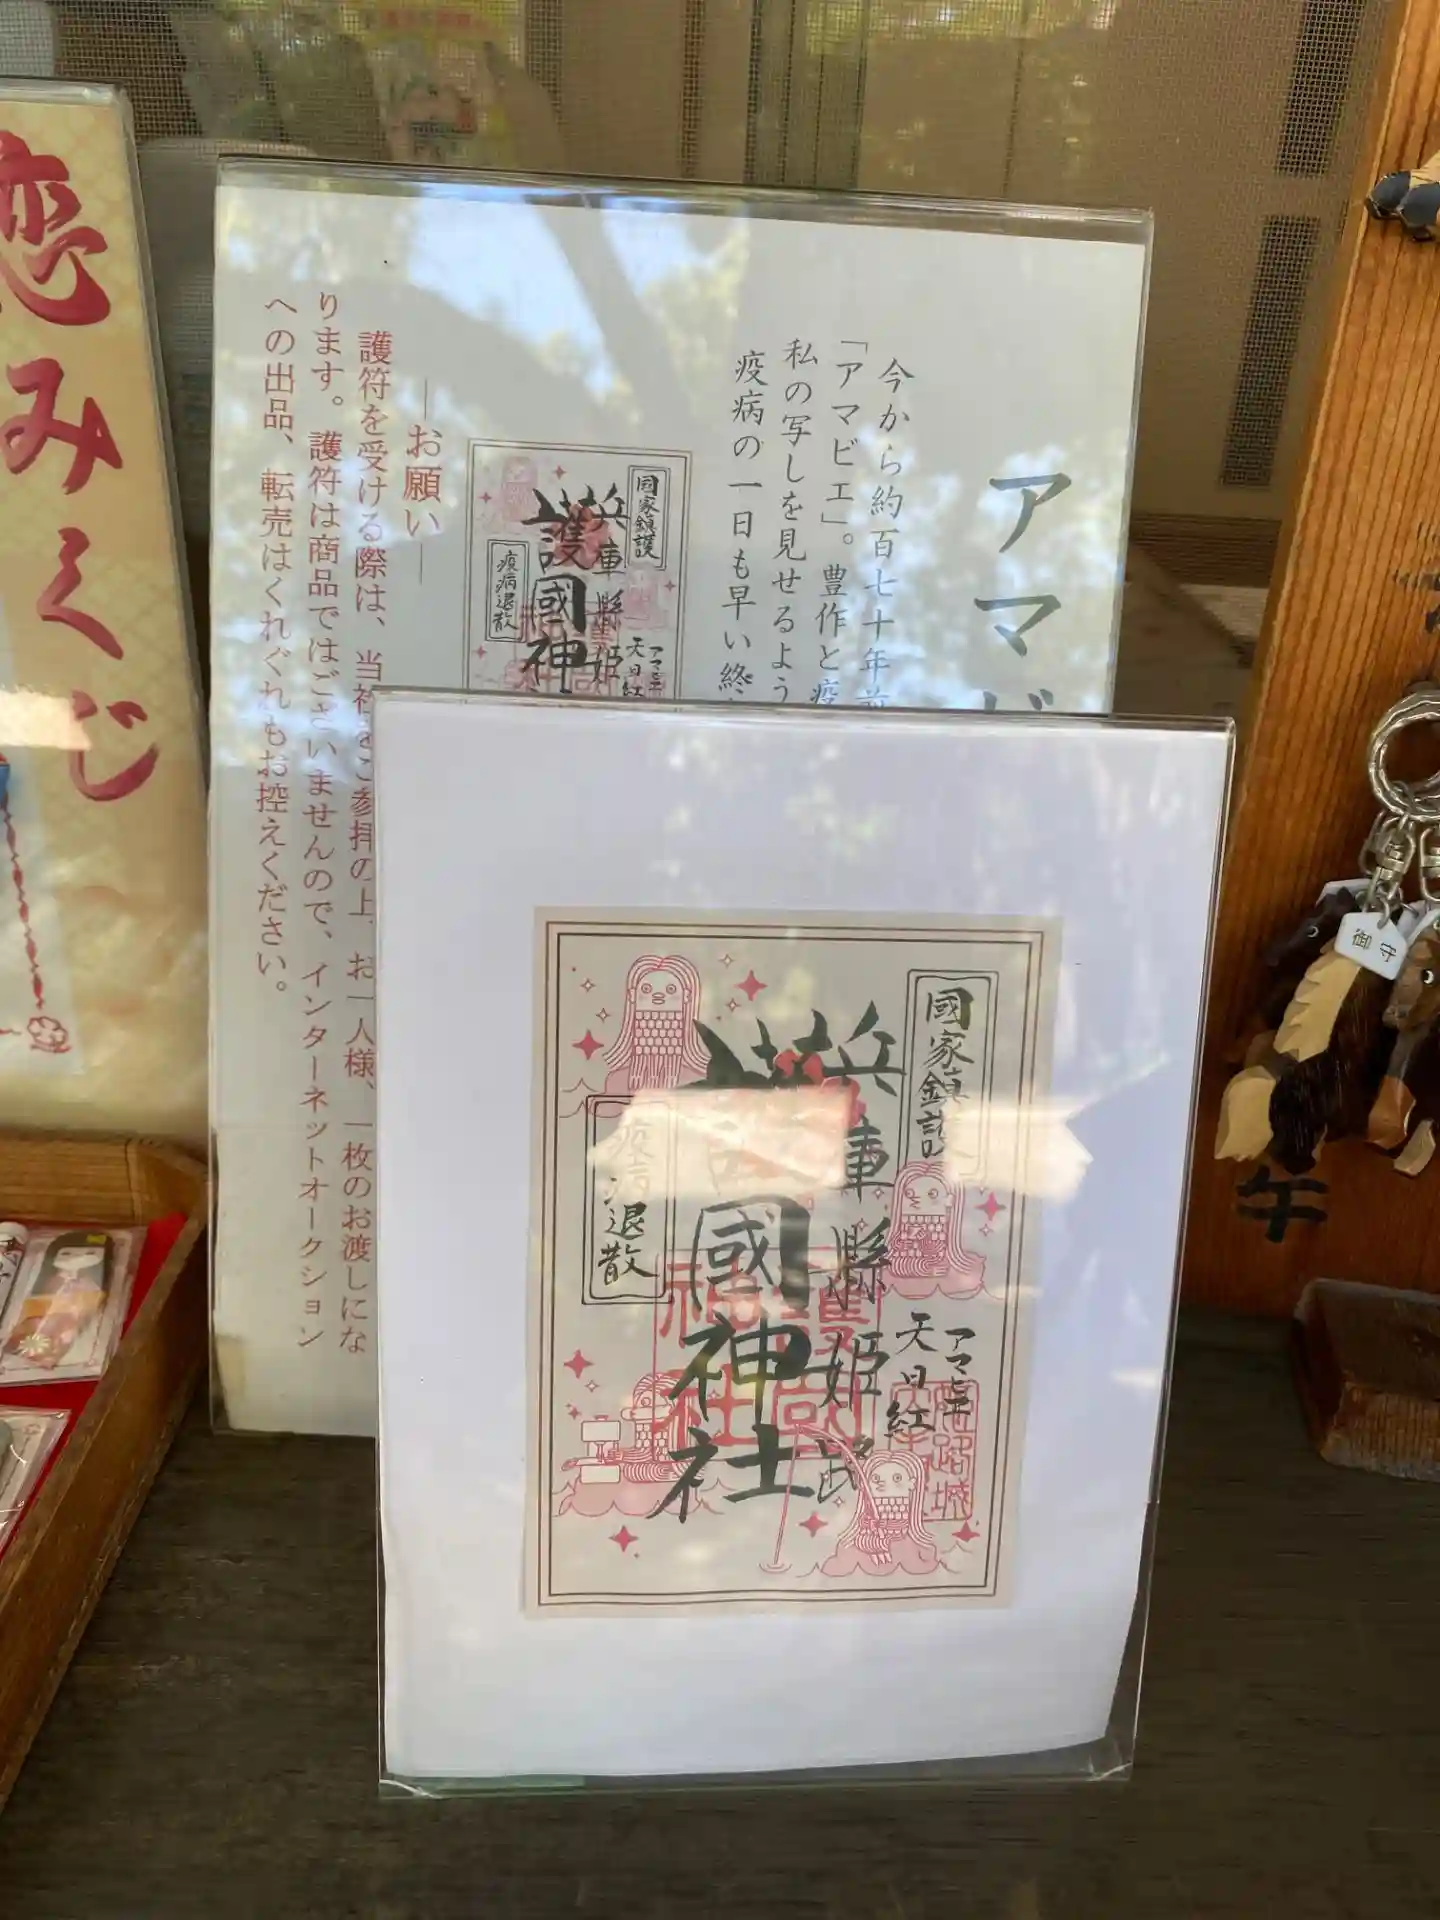 恋みくじ
アマビ
今から約百七十年前
「アマビエ」。豊作と疫
私の写しを見せるよう
疫病の一日も早い終
國家鎮護
兵庫縣姫
護國神
疫病退散
アマビエ
天日紅
―お願い―
護符を受ける際は、当社をご参拝の上、お一人様、一枚のお渡しにな
ります。護符は商品ではございませんので、インターネットオークション
への出品、転売はくれぐれもお控えください。
國家鎮護
兵庫縣姫路
護國神社
疫病退散
アマビエ
天日紅
護國
神社
姫路城
御守
午